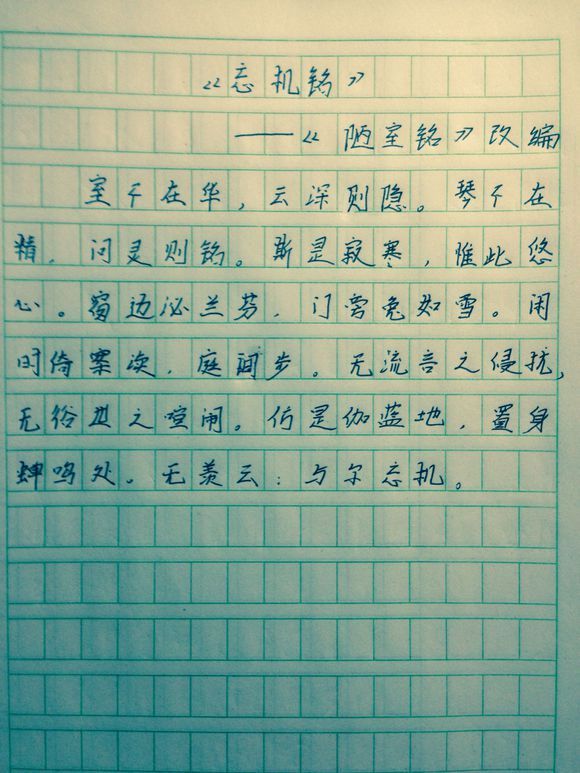 《忘机铭》
——《陋室铭》改编
室不在华，云深则隐。琴不在
精，问灵则铭。斯是寂寒，惟此悠
心。窗边泌兰芬，门旁兔如雪。闲
时倚案次，庭间步。无流言之侵扰，
无俗世之喧闹。仿是伽蓝地，置身
蝉鸣处。无羡云：与尔忘机。